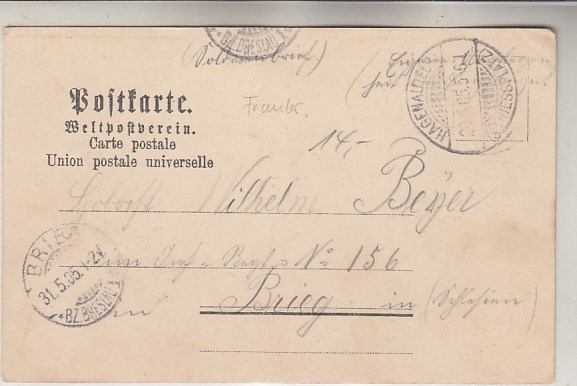 BZ.BRESLAU
(Soldatenbrief.)
HAGENAU (ELS.)
SCHIESSPLATZ
Postkarte.
Weltpostverein.
Carte postale
Union postale universelle
14,-
Wilhelm Beyer
BRIEG
31.5.05. 1-2V.
BZ. BRESLAU
Inf.-Regt. No 156
Brieg in (Schlesien)